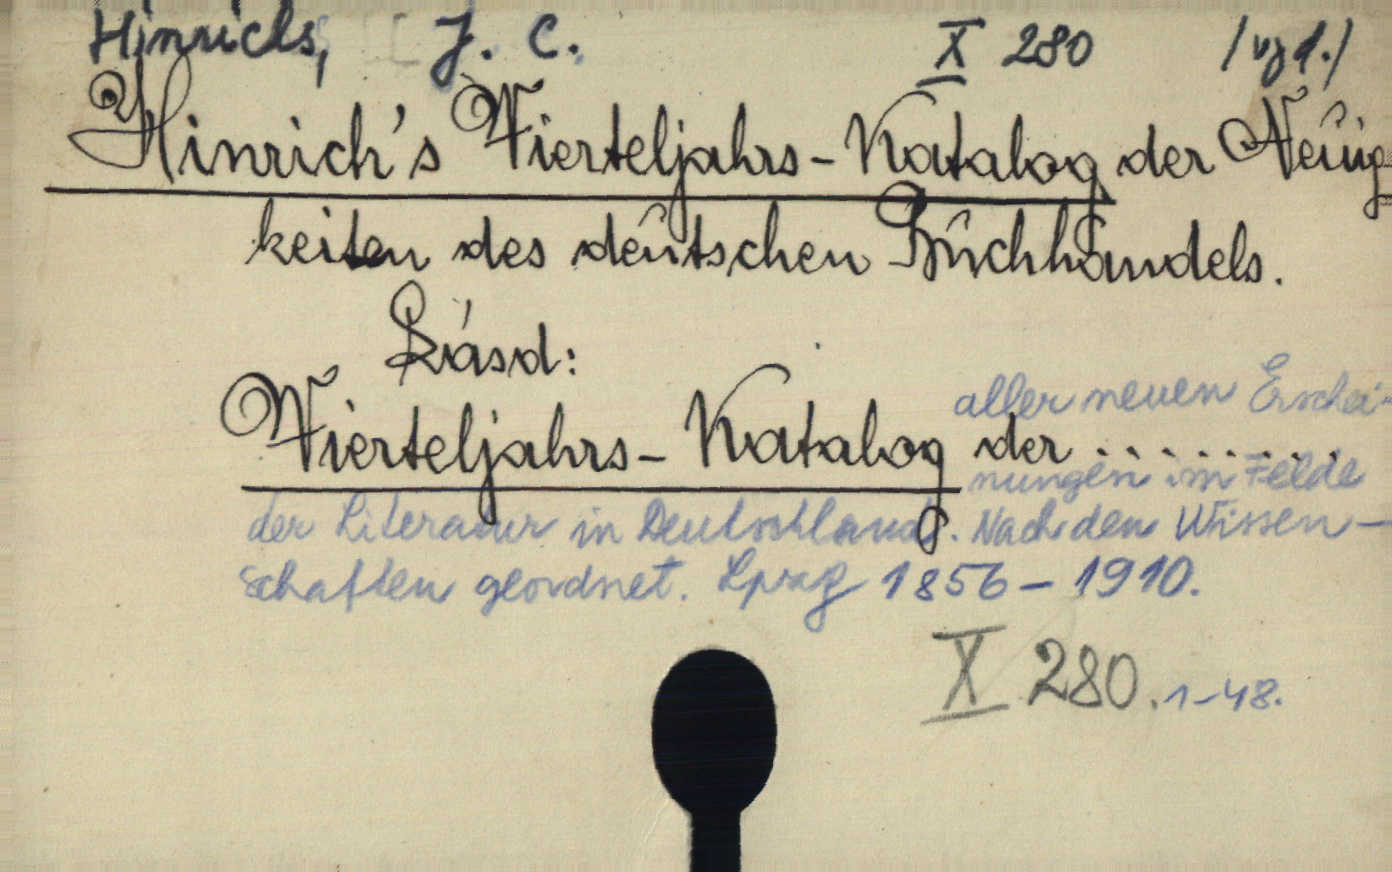 Hinrichs, J. C. X 280 /vgl./
Hinrich's Vierteljahrs-Katalog der Neuig
keiten des deutschen Buchhandels.
Lásd:
aller neuen Erschei-
Vierteljahrs-Katalog der ........
nungen im Felde
der Literatur in Deutschland. Nach den Wissen-
schaften geordnet. Lpzg 1856-1910.
X 280. 1-48.